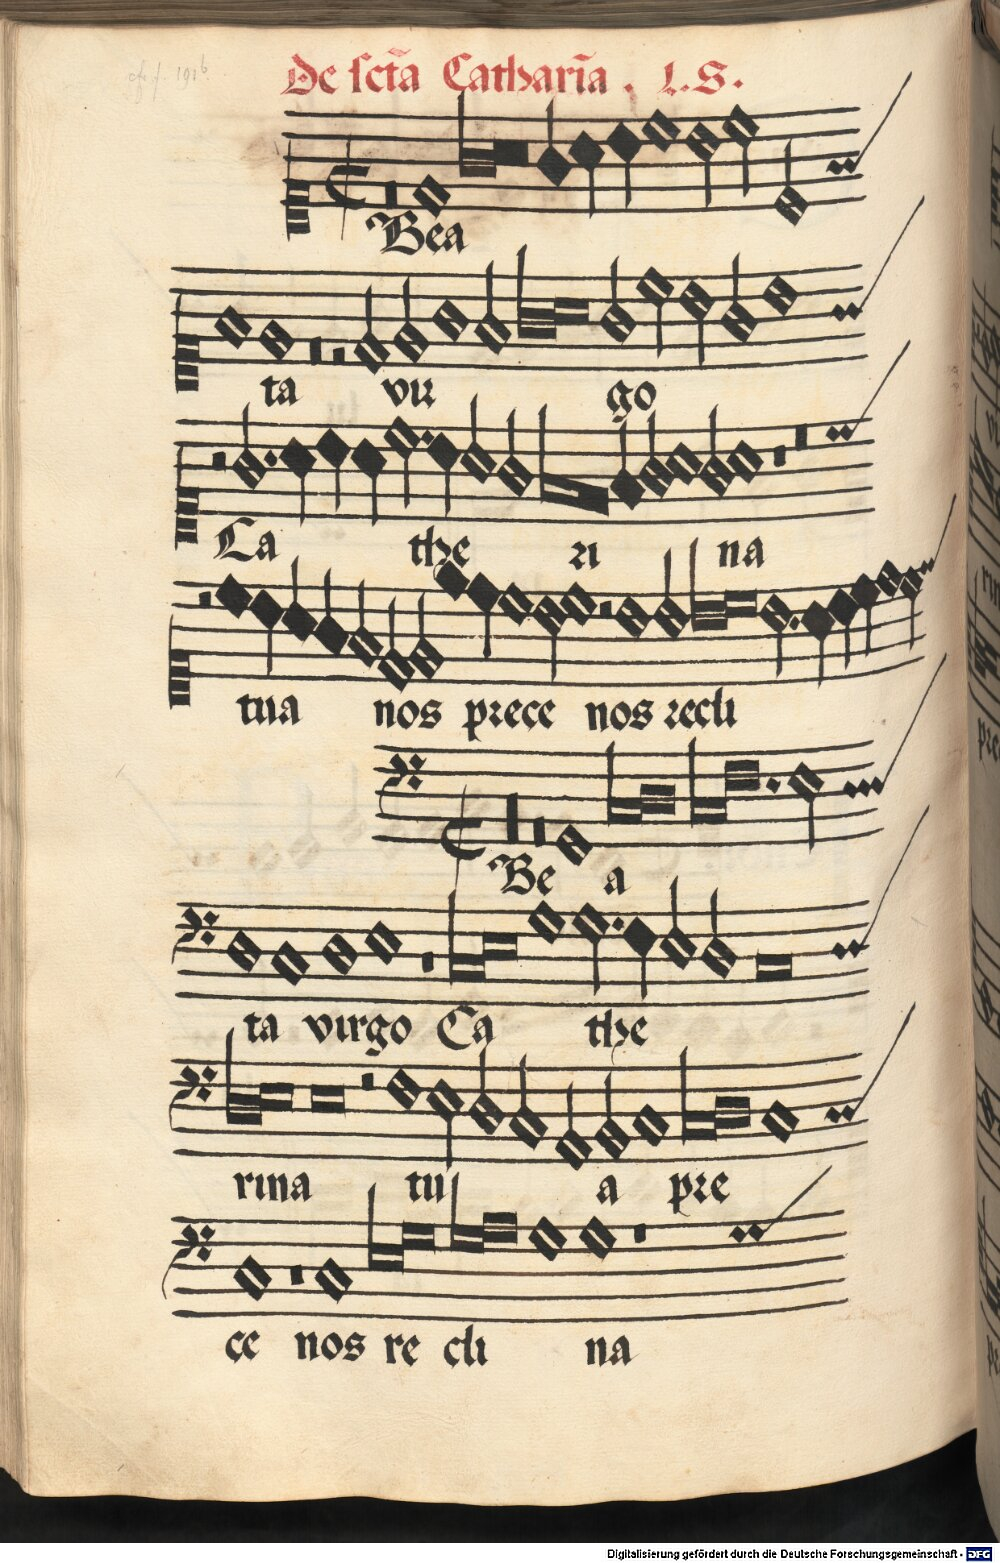 De sctā Catharīa . L.S.
Bea
ta vir go
Ca the ri na
tua nos prece nos recli
Be a
ta virgo Ca the
rina tu a pre
ce nos re cli na
Digitalisierung gefördert durch die Deutsche Forschungsgemeinschaft - DFG